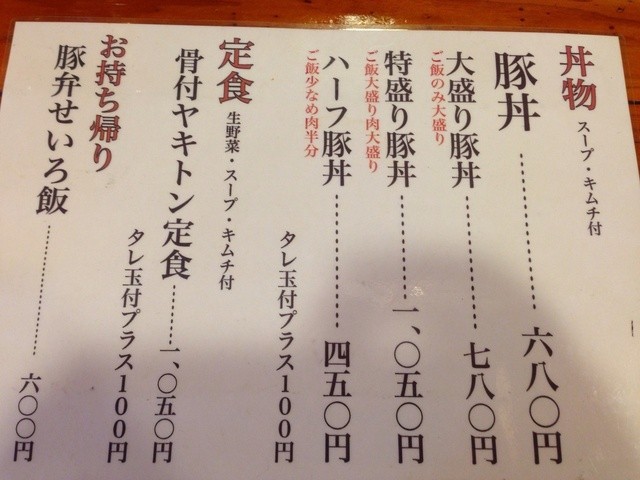 丼物 スープ・キムチ付
豚丼 六八〇円
大盛り豚丼 七八〇円
ご飯のみ大盛り
特盛り豚丼 一、〇五〇円
ご飯大盛り肉大盛り
ハーフ豚丼 四五〇円
ご飯少なめ肉半分
タレ玉付プラス100円
定食 生野菜・スープ・キムチ付
骨付ヤキトン定食 一、〇五〇円
タレ玉付プラス100円
お持ち帰り
豚弁せいろ飯 六〇〇円